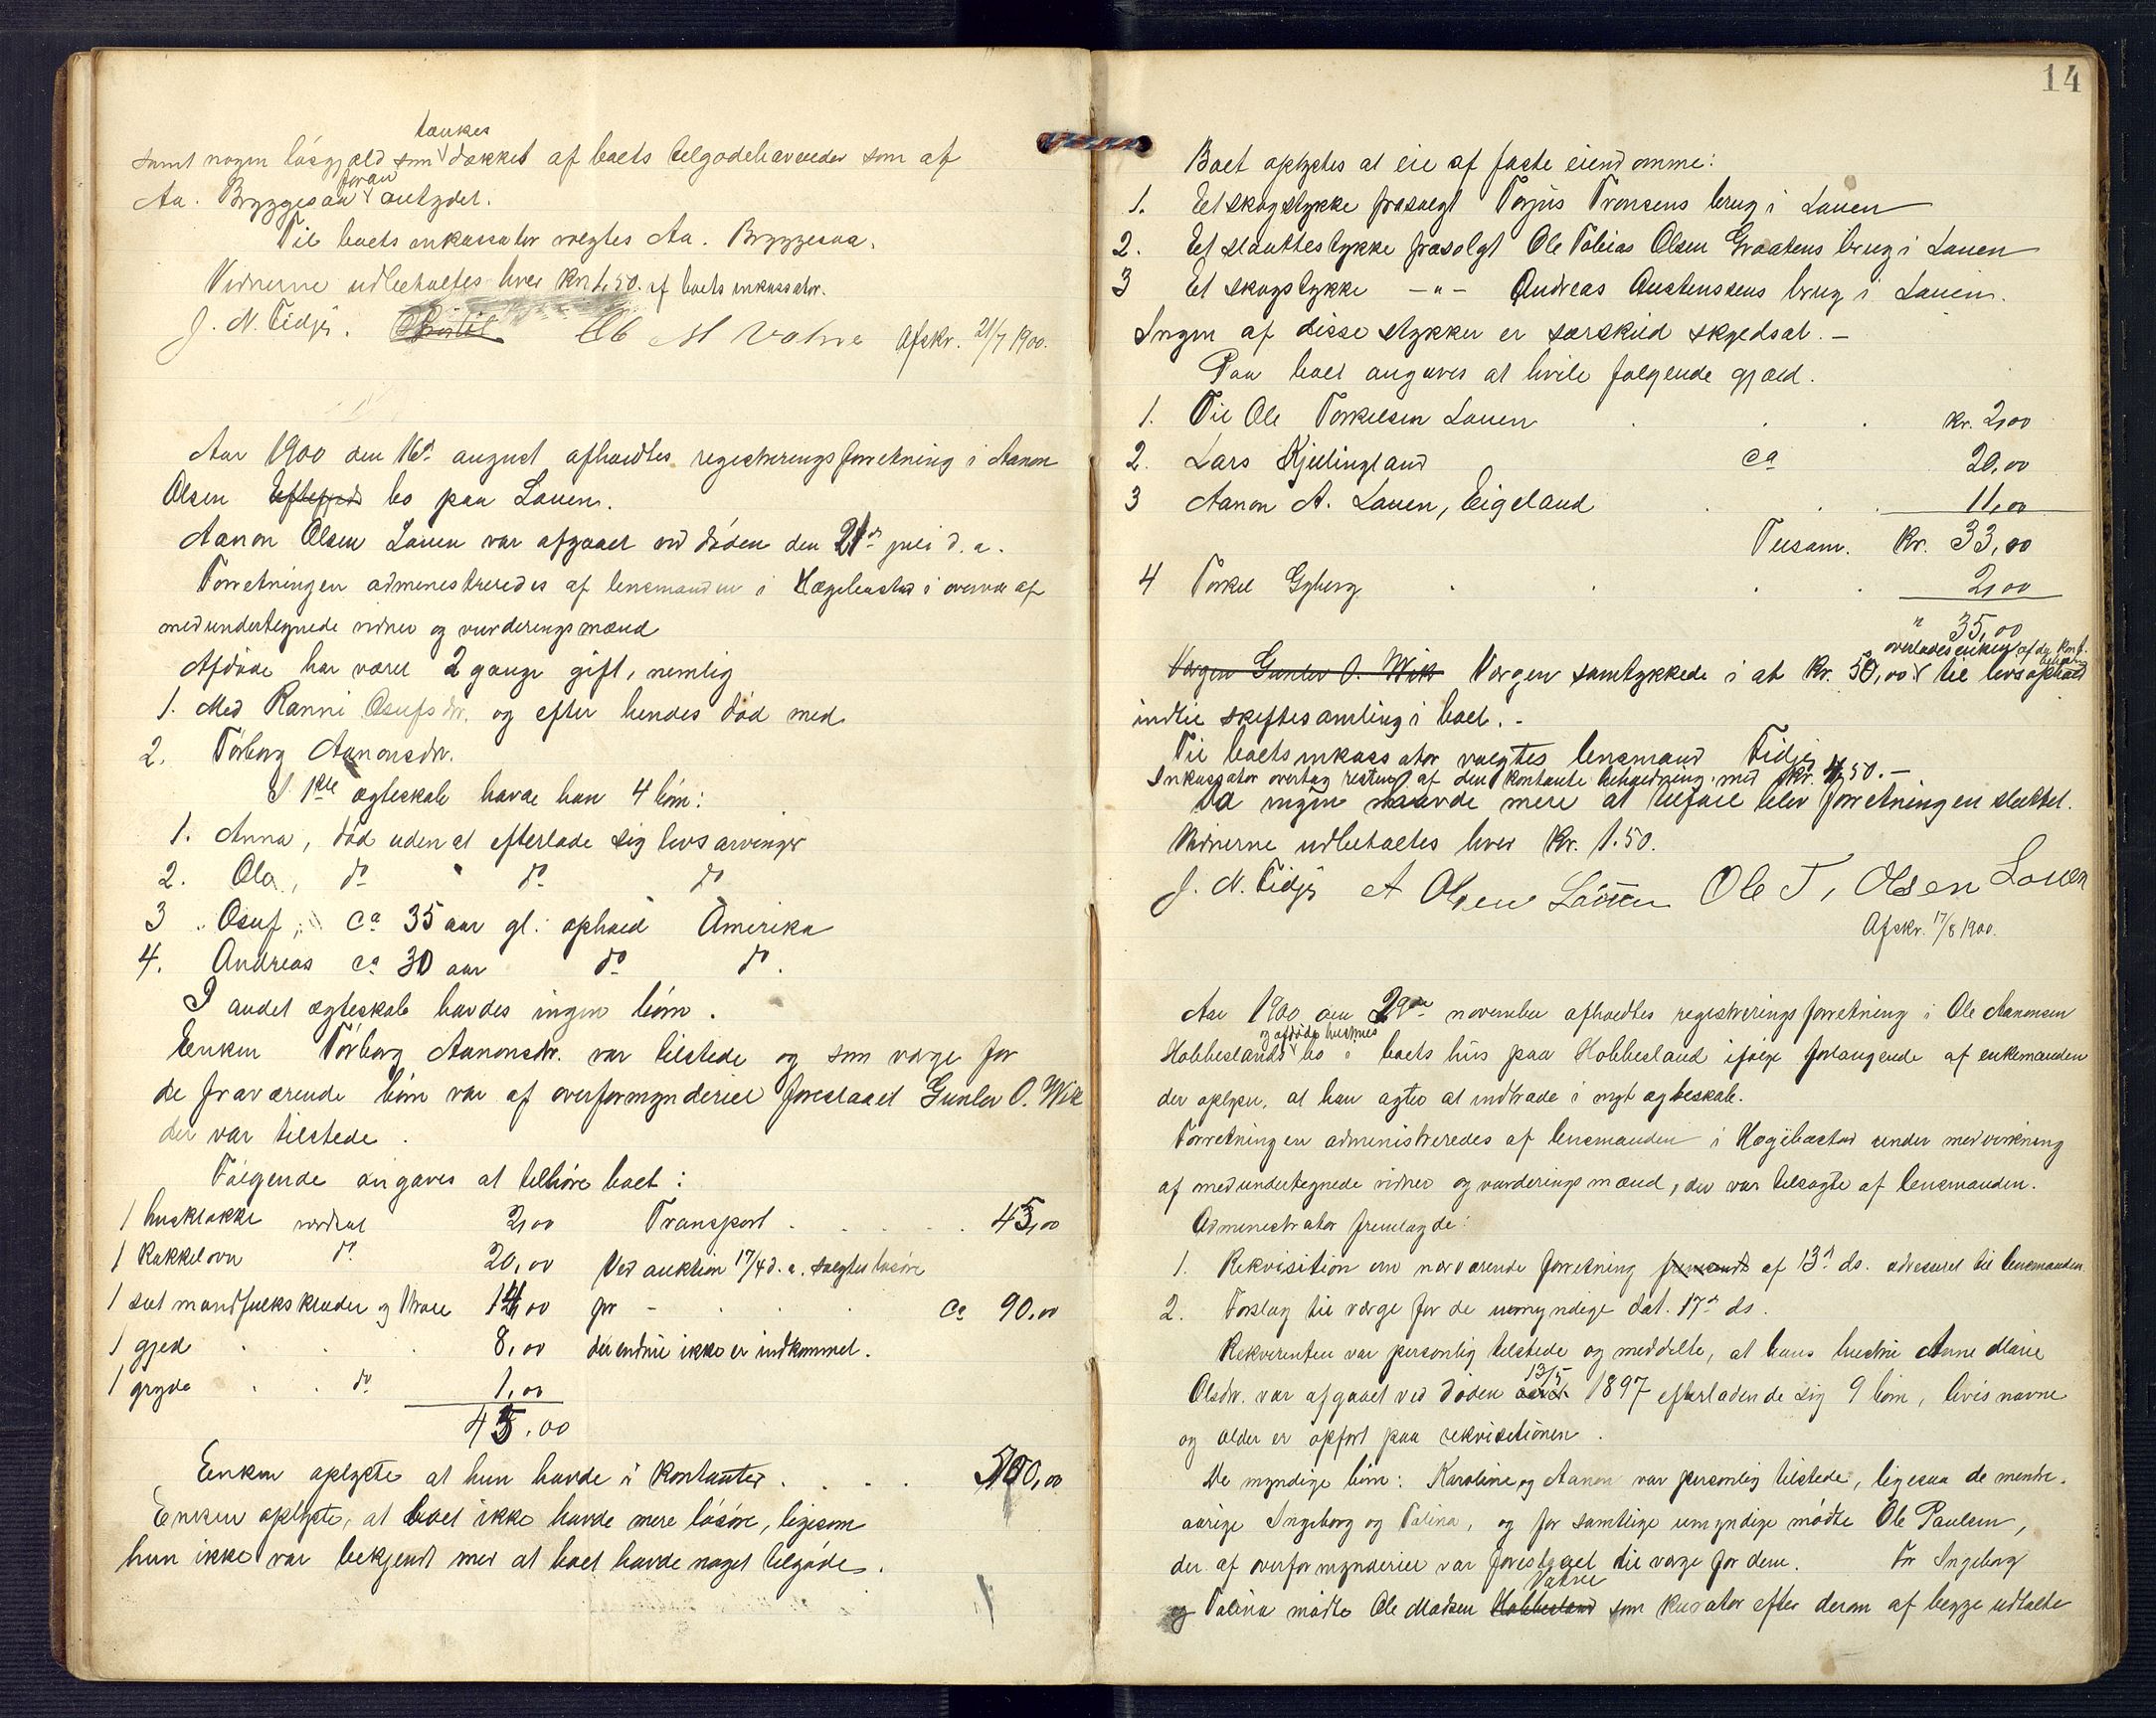 samt nogen løsgjæld som tænkes dækket af boets tilgodehavender som af
Aa. Bryggesaa foran antydet.
Til boets inkassator valgtes Aa. Bryggesaa.
Vidnerne udbetaltes hver kr. 1,50 af boets inkassator.
J. N. Tidjs. Ole M Vatne Afskr. 21/7 1900.
Aar 1900 den 16de august afholdtes registreringsforretning i Aanon
Olsen bo paa Lauen.
Aanon Olsen Lauen var afgaaet ved døden den 21de juli d. a.
Forretningen administreredes af lensmanden i Hægebostad i overvær af
medundertegnede vidner og vurderingsmænd
Afdøde har været 2 gange gift, nemlig
1. Med Ranni Osufsdr. og efter hendes død med
2. Tørborg Aanonsdr.
I 1ste ægteskab havde han 4 børn:
1. Anna, død uden at efterlade sig livsarvinger
2. Ola, do do do
3. Osuf, ca 35 aar gl. ophold Amerika
4. Andreas ca 30 aar do do.
I andet ægteskab havdes ingen børn.
Enken Tørborg Aanonsdr. var tilstede og som værge for
de fraværende børn var af overformynderiet foreslaaet Gunlev O. Wik
der var tilstede.
Følgende angaves at tilhøre boet:
1 husklokke vurdert 2,00 Transport . . . . . 45,00
1 Kakkelovn do 20,00 Ved auktion 17/4 d. a. solgtes løsøre
1 sæt mandfolksklæder og 14,00 for - . . . ca 90,00
1 gjed . . . 8,00 der endnu ikke er indkommet.
1 gryde . . do 1,00
45,00
Enken oplyste at hun havde i kontanter . . . . 100,00
Enken oplyste, at boet ikke havde mere løsøre, ligesom
hun ikke var bekjendt med at boet havde noget tilgode.
14
Boet oplystes at eie af faste eiendomme:
1. Et skogstykke frasolgt Torjus Tronsens brug i Lauen
2. Et slaattestykke frasolgt Ole Tobias Olsen Graatens brug i Lauen
3 Et skogstykke -"- Andreas Austensens brug i Lauen.
Ingen af disse stykker er særskild skyldsat. -
Paa boet angaves at hvile følgende gjæld.
1. Til Ole Torkelsen Lauen . . . kr. 2,00
2. Lars Kjellingland ca 20,00
3 Aanon A. Lauen, Eigeland . . . 11,00
Tilsam. Kr. 33,00
4 Torkel Gyberg . . . 2,00
" 35,00
Værgen Gunlev O. Wik Værgen samtykkede i at kr. 50,00 overlades enken af dg. kont. beholdn. til livsophold
indtil skiftesamling i boet. -
Til boets inkassator valgtes lensmand Tidjs
Inkassator overtog resten af den kontante beholdning med kr. 50. -
Da ingen havde mere at tilføie blev forretningen sluttet.
Vidnerne udbetaltes hver Kr. 1.50.
J. N. Tidjs A Olsen Løuen Ole T, Olsen Louen
Afskr. 17/8 1900.
Aar 1900 den 29de november afholdtes registreringsforretning i Ole Aanonsen
Hobbeslands og afdøde hustrues bo i boets hus paa Hobbesland ifølge forlangende af enkemanden
der oplyser, at han agter at indtræde i nyt ægteskab.
Forretningen administreredes af lensmanden i Hægebostad under medvirkning
af medundertegnede vidner og vurderingsmænd, der var tilsagte af lensmanden.
Administrator fremlagde:
1. Rekvisition om nærværende forretning af 13de ds. adresseret til lensmanden.
2. Forslag til værge for de umyndige dat. 17de ds.
Rekvirenten var personlig tilstede og meddelte, at hans hustru Anne Marie
Olsdr. var afgaaet ved døden 13/5 1897 efterladende sig 9 børn, hvis navne
og alder er opført paa rekvisitionen.
De myndige børn: Karoline og Aanon var personlig tilstede, ligesaa de mindre-
aarige Ingeborg og Talina, og for samtlige umyndige mødte Ole Paulsen,
der af overformynderiet var foreslaaet til værge for dem. For Ingeborg
og Talina mødte Ole Madsen Hobbesland Vatne som kurator efter derom af begge udtalte